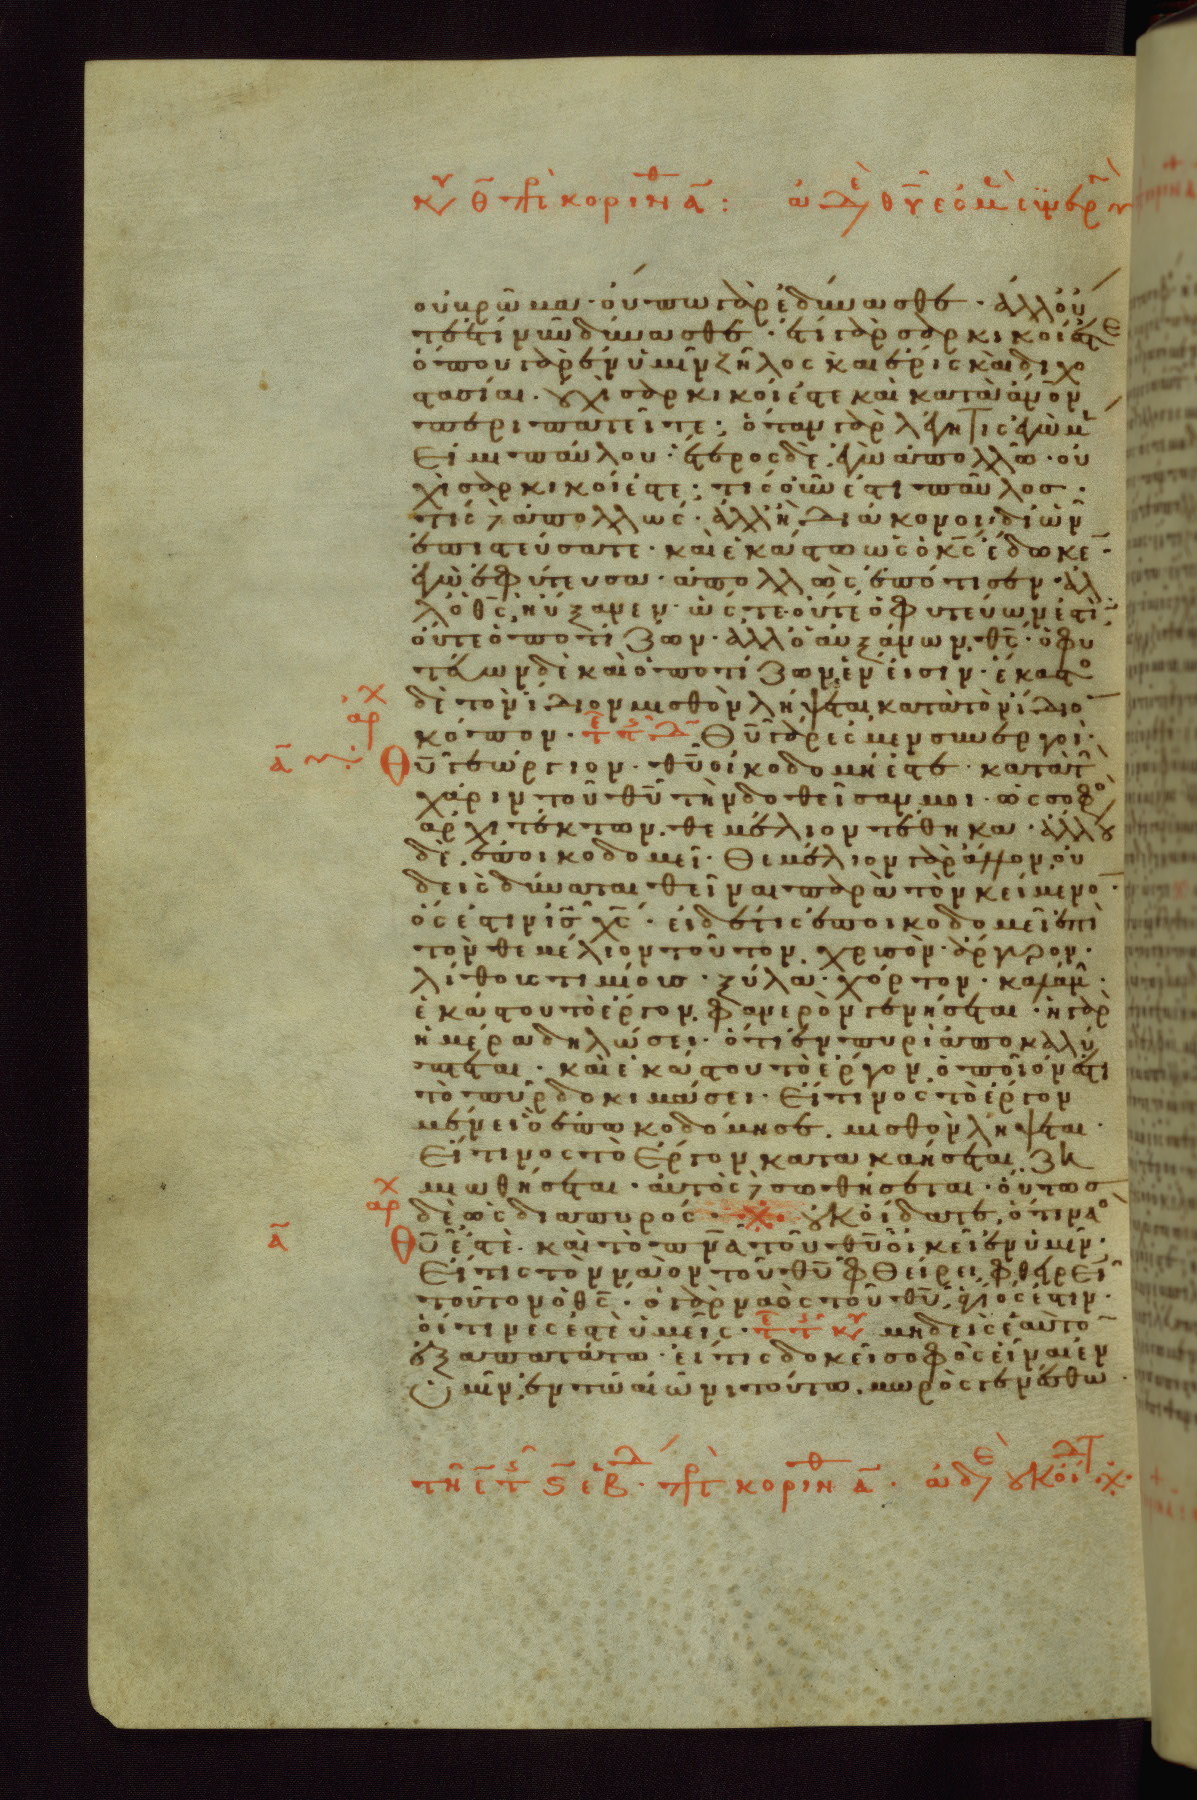 κυ θ πρ κορινθ α : αδε θυ εσμε συνερ
οὐ βρῶμα· οὔπω γὰρ ἐδύνασθε· ἀλλ οὐ
τε ἔτι νῦν δύνασθε· ἔτι γὰρ σαρκικοί ἐστε
ὅπου γὰρ ἐν ὑμῖν ζῆλος καὶ ἔρις καὶ διχο
στασίαι. οὐχὶ σαρκικοί ἐστε καὶ κατὰ ἄνον
περιπατεῖτε; ὅταν γὰρ λέγη τις ἐγὼ μὲν
εἰμι παύλου· ἕτερος δὲ ἐγὼ ἀπολλῶ· οὐ
χὶ σαρκικοί ἐστε; τίς οὖν ἐστι παῦλος·
τίς δὲ ἀπολλώς· ἀλλ ἢ διάκονοι δι ὧν
ἐπιστεύσατε· καὶ ἑκάστω ὡς ὁ κς ἔδωκεν·
ἐγὼ ἐφύτευσα· ἀπολλὼς ἐπότισεν· ἀλ
λ ὁ θς ηὔξανεν· ὥστε οὔτε ὁ φυτεύων ἐστί τι
οὔτε ὁ ποτίζων· ἀλλ ὁ αὐξάνων θς· ὁ φυ
τεύων δὲ καὶ ὁ ποτίζων ἕν εἰσιν· ἕκαστος
δὲ τὸν ἴδιον μισθὸν λήψεται κατὰ τὸν ἴδιον
κόπον· θυ γάρ ἐσμεν συνεργοί·
θυ γεώργιον· θυ οἰκοδομή ἐστε· κατὰ τὴν
χάριν τοῦ θυ τὴν δοθεῖσαν μοι· ὡς σοφὸς
ἀρχιτέκτων θεμέλιον τέθηκα· ἄλλος
δὲ ἐποικοδομεῖ· θεμέλιον γὰρ ἄλλον οὐ
δεὶς δύναται θεῖναι παρὰ τὸν κείμενον·
ὅς ἐστιν ις χς· εἰ δέ τις ἐποικοδομεῖ ἐπὶ
τὸν θεμέλιον τοῦτον χρυσὸν· ἄργυρον·
λίθους τιμίους· ξύλα· χόρτον· καλάμην·
ἑκάστου τὸ ἔργον φανερὸν γενήσεται· ἡ γὰρ
ἡμέρα δηλώσει· ὅτι ἐν πυρὶ ἀποκαλύ
πτεται· καὶ ἑκάστου τὸ ἔργον ὁποῖόν ἐστι
τὸ πῦρ δοκιμάσει· εἴ τινος τὸ ἔργον
μένει ὃ ἐπωκοδόμησε. μισθὸν λήψεται·
εἴ τινος τὸ ἔργον κατακαήσεται ζη
μιωθήσεται· αὐτὸς δὲ σωθήσεται· οὕτως
δὲ ὡς διὰ πυρός· οὐκ οἴδατε ὅτι ναὸς
θυ ἐστὲ. καὶ τὸ πνα τοῦ θυ οἰκεῖ ἐν ὑμῖν·
εἴ τις τὸν ναὸν τοῦ θυ φθείρει φθερεῖ
τοῦτον ὁ θς· ὁ γὰρ ναὸς τοῦ θυ ἅγιός ἐστιν·
οἵτινές ἐστε ὑμεῖς· μηδεὶς ἑαυτὸν
ἐξαπατάτω· εἴ τις δοκεῖ σοφὸς εἶναι ἐν
ὑμῖν ἐν τῶ αἰῶνι τούτω. μωρὸς γενέσθω·
τη ε τ ς εβδ πρ κορινθ α. αδε οὐκ οἴδατ